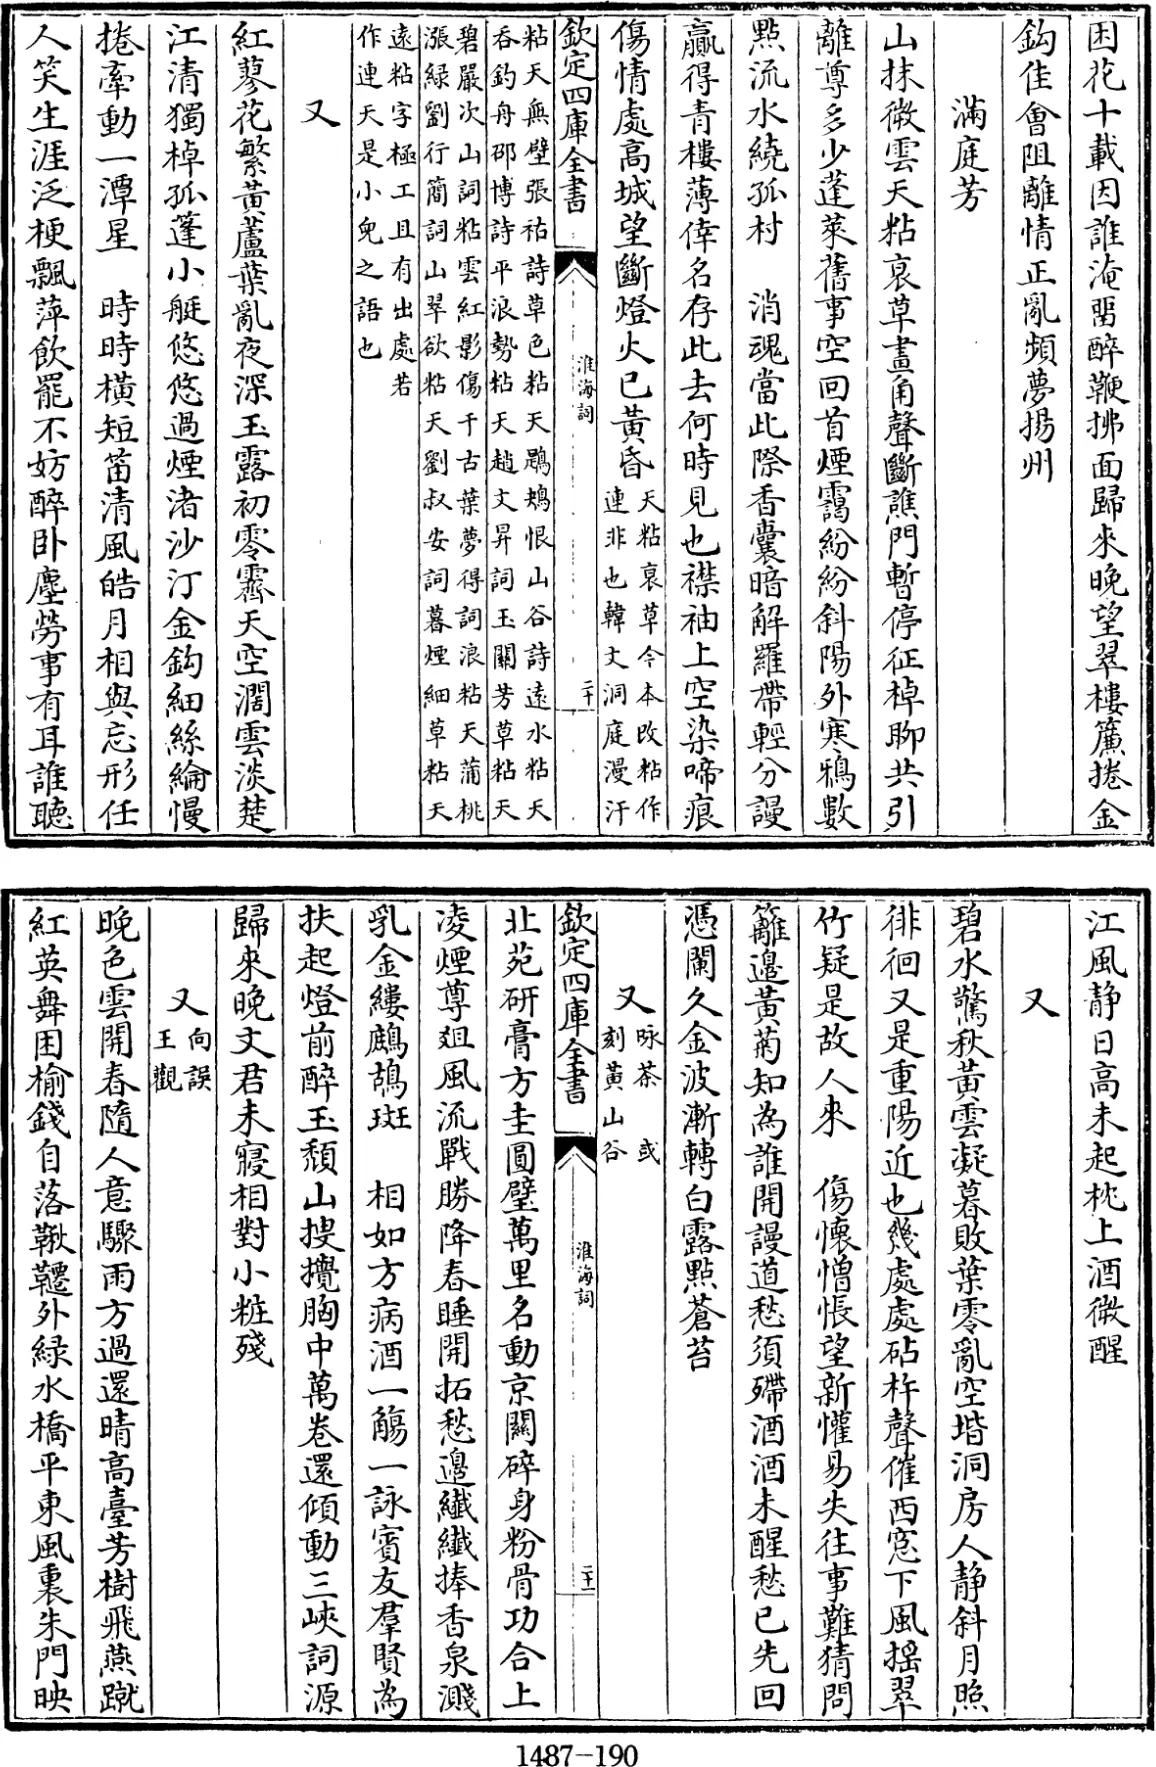 困花十載因誰淹留醉鞭拂面歸來晚望翠樓簾捲金
鈎佳會阻離情正亂頻夢揚州
滿庭芳
山抹微雲天粘衰草畫角聲斷譙門暫停征棹聊共引
離尊多少蓬萊舊事空回首煙靄紛紛斜陽外寒鴉數
點流水繞孤村　消魂當此際香囊暗解羅帶輕分謾
贏得青樓薄倖名存此去何時見也襟袖上空染啼痕
傷情處高城望斷燈火已黃昏天粘衰草今本改粘作
連非也韓文洞庭漫汗
欽定四庫全書　淮海詞　二十
粘天無壁張祜詩草色粘天鶗鴂恨山谷詩遠水粘天
呑釣舟邵博詩平浪勢粘天趙文昇詞玉關芳草粘天
碧嚴次山詞粘雲紅影傷千古葉夢得詞浪粘天蒲桃
漲綠劉行簡詞山翠欲粘天劉叔安詞暮煙細草粘天
遠粘字極工且有出處若
作連天是小兒之語也
又
紅蓼花繁黃蘆葉亂夜深玉露初零霽天空濶雲淡楚
江清獨棹孤蓬小艇悠悠過煙渚沙汀金鈎細絲綸慢
捲牽動一潭星　時時橫短笛清風皓月相與忘形任
人笑生涯泛梗飄萍飲罷不妨醉卧塵勞事有耳誰聽
江風静日高未起枕上酒微醒
又
碧水驚秋黃雲凝暮敗葉零亂空堦洞房人静斜月照
徘徊又是重陽近也幾處處砧杵聲催西窓下風揺翠
竹疑是故人來　傷懷憎悵望新懽易失往事難猜問
籬邊黃菊知為誰開謾道愁須殢酒酒未醒愁已先回
憑闌久金波漸轉白露點蒼苔
又咏茶或
刻黃山谷
欽定四庫全書　淮海詞　二十一
北苑研膏方圭圓璧萬里名動京關碎身粉骨功合上
凌煙尊爼風流戰勝降春睡開拓愁邊纖纖捧香泉濺
乳金縷鷓鴣斑　相如方病酒一觴一詠賓友羣賢為
扶起燈前醉玉頹山搜攪胸中萬卷還傾動三峽詞源
歸來晚文君未寢相對小粧殘
又向誤
王觀
晚色雲開春隨人意驟雨方過還晴高臺芳樹飛燕蹴
紅英舞困榆錢自落鞦韆外緑水橋平東風裏朱門映
1487—190